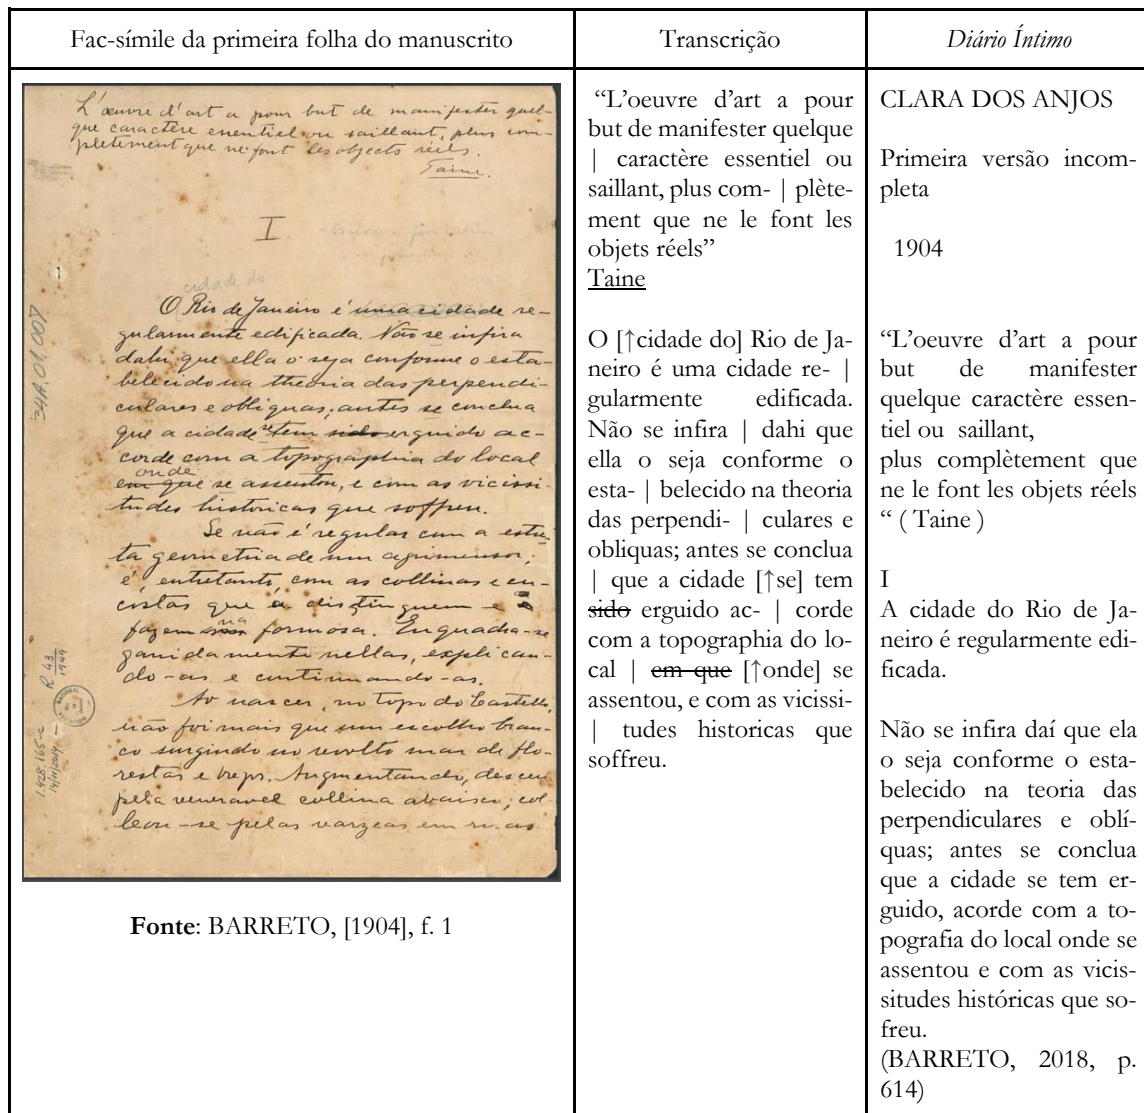 Fac-símile da primeira folha do manuscrito
L'œuvre d'art a pour but de manifester quel-
que caractère essentiel ou saillant, plus com-
plètement que ne font les objects réels.
Taine.
I
cidade do
O Rio de Janeiro é uma cidade re-
gularmente edificada. Não se infira
dahi que ella o seja conforme o esta-
belecido na theoria das perpendi-
culares e obliquas; antes se conclua
que a cidade se tem sido erguido ac-
corde com a topographia do local
onde
em que se assentou, e com as vicissi-
tudes historicas que soffreu.
Se não é regular com a estrei
ta geometria de um agrimensor,
é, entretanto, com as collinas e en-
costas que a distinguem e
fazem na formosa. Enquadra-se
ganidamente nellas, explican-
do-as e continuando-as.
Ao nascer, no topo do Castello,
não foi mais que um escolho bran-
co surgindo no revolto mar de flo-
restas e brejos. Augmentando, desceu
pela veneravel collina abaixo; col-
leou-se pelas varzeas em ruas
34A,01,007
R 43
1949
1.428.165-2
14/11/2014
Fonte: BARRETO, [1904], f. 1
Transcrição
“L'oeuvre d'art a pour
but de manifester quelque
| caractère essentiel ou
saillant, plus com- | plète-
ment que ne le font les
objets réels”
Taine
O [↑cidade do] Rio de Ja-
neiro é uma cidade re- |
gularmente edificada.
Não se infira | dahi que
ella o seja conforme o
esta- | belecido na theoria
das perpendi- | culares e
obliquas; antes se conclua
| que a cidade [↑se] tem
sido erguido ac- | corde
com a topographia do lo-
cal | em que [↑onde] se
assentou, e com as vicissi-
| tudes historicas que
soffreu.
Diário Íntimo
CLARA DOS ANJOS
Primeira versão incom-
pleta
1904
“L'oeuvre d'art a pour
but de manifester
quelque caractère essen-
tiel ou saillant,
plus complètement que
ne le font les objets réels
“ ( Taine )
I
A cidade do Rio de Ja-
neiro é regularmente edi-
ficada.
Não se infira daí que ela
o seja conforme o esta-
belecido na teoria das
perpendiculares e oblí-
quas; antes se conclua
que a cidade se tem er-
guido, acorde com a to-
pografia do local onde se
assentou e com as vicis-
situdes históricas que so-
freu.
(BARRETO, 2018, p.
614)